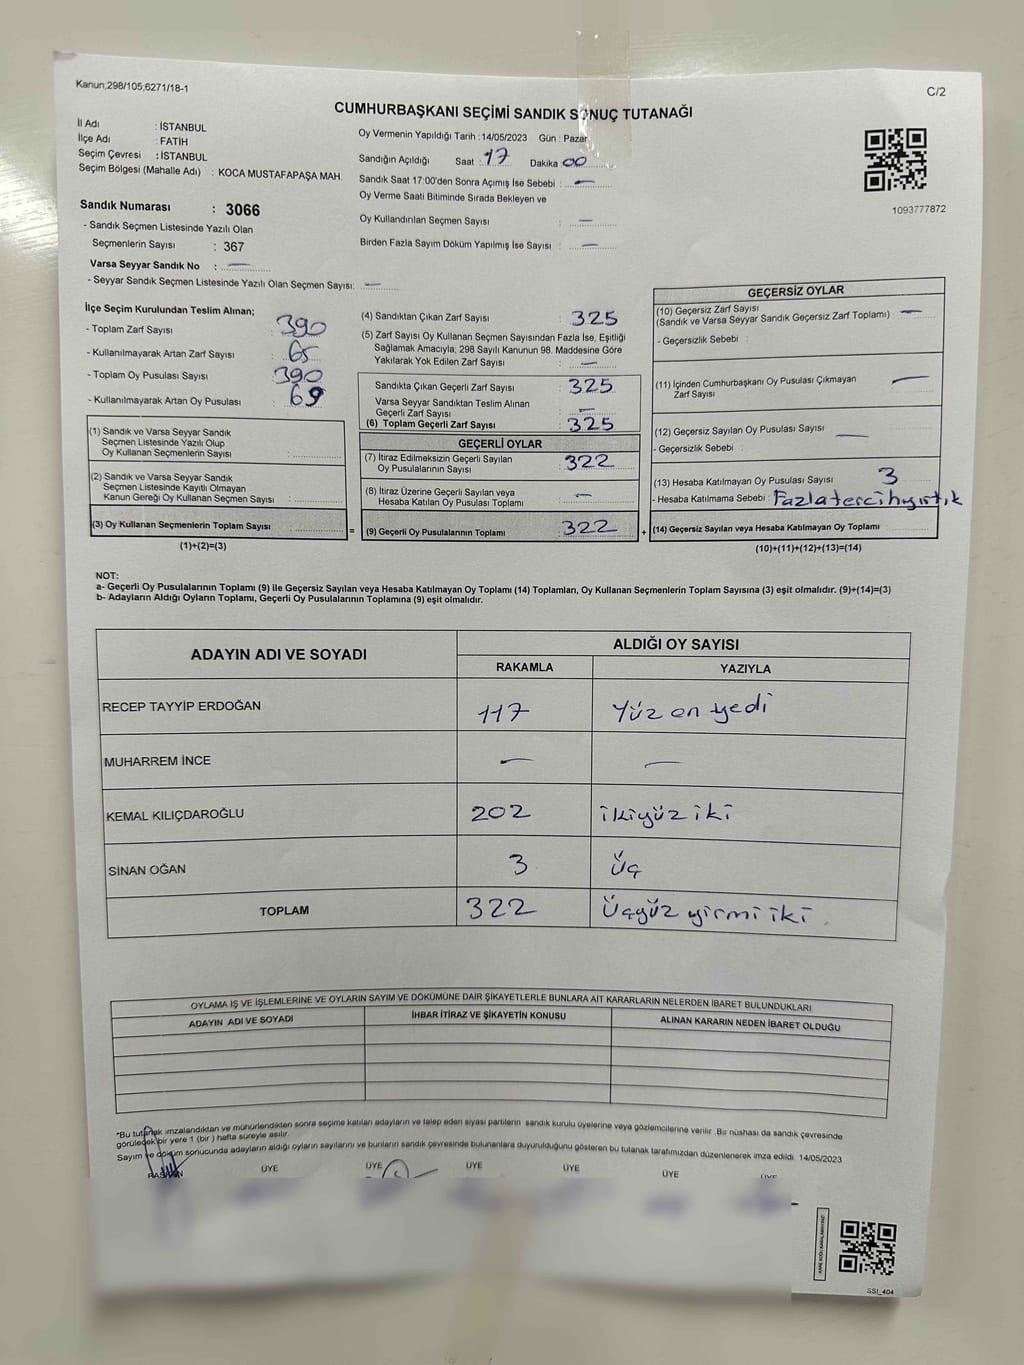 Kanun;298/105;6271/18-1
C/2
CUMHURBAŞKANI SEÇİMİ SANDIK SONUÇ TUTANAĞI
İl Adı : İSTANBUL
İlçe Adı : FATİH
Seçim Çevresi : İSTANBUL
Seçim Bölgesi (Mahalle Adı) : KOCA MUSTAFAPAŞA MAH.
Sandık Numarası : 3066
- Sandık Seçmen Listesinde Yazılı Olan
Seçmenlerin Sayısı : 367
Varsa Seyyar Sandık No : —
- Seyyar Sandık Seçmen Listesinde Yazılı Olan Seçmen Sayısı: —
Oy Vermenin Yapıldığı Tarih : 14/05/2023 Gün : Pazar
Sandığın Açıldığı Saat : 17 Dakika 00
Sandık Saat 17:00'den Sonra Açımış İse Sebebi : —
Oy Verme Saati Bitiminde Sırada Bekleyen ve
Oy Kullandırılan Seçmen Sayısı : —
Birden Fazla Sayım Döküm Yapılmış İse Sayısı : —
1093777872
İlçe Seçim Kurulundan Teslim Alınan;
- Toplam Zarf Sayısı : 390
- Kullanılmayarak Artan Zarf Sayısı : 65
- Toplam Oy Pusulası Sayısı : 390
- Kullanılmayarak Artan Oy Pusulası : 69
(1) Sandık ve Varsa Seyyar Sandık
Seçmen Listesinde Yazılı Olup
Oy Kullanan Seçmenlerin Sayısı :
(2) Sandık ve Varsa Seyyar Sandık
Seçmen Listesinde Kayıtlı Olmayan
Kanun Gereği Oy Kullanan Seçmen Sayısı :
(3) Oy Kullanan Seçmenlerin Toplam Sayısı :
(1)+(2)=(3)
(4) Sandıktan Çıkan Zarf Sayısı : 325
(5) Zarf Sayısı Oy Kullanan Seçmen Sayısından Fazla İse, Eşitliği
Sağlamak Amacıyla; 298 Sayılı Kanunun 98. Maddesine Göre
Yakılarak Yok Edilen Zarf Sayısı : —
Sandıkta Çıkan Geçerli Zarf Sayısı : 325
Varsa Seyyar Sandıktan Teslim Alınan
Geçerli Zarf Sayısı : —
(6) Toplam Geçerli Zarf Sayısı : 325
GEÇERLİ OYLAR
(7) İtiraz Edilmeksizin Geçerli Sayılan
Oy Pusulalarının Sayısı : 322
(8) İtiraz Üzerine Geçerli Sayılan veya
Hesaba Katılan Oy Pusulası Toplamı : —
= (9) Geçerli Oy Pusulalarının Toplamı : 322
GEÇERSİZ OYLAR
(10) Geçersiz Zarf Sayısı
(Sandık ve Varsa Seyyar Sandık Geçersiz Zarf Toplamı) : —
- Geçersizlik Sebebi :
(11) İçinden Cumhurbaşkanı Oy Pusulası Çıkmayan
Zarf Sayısı —
(12) Geçersiz Sayılan Oy Pusulası Sayısı : —
- Geçersizlik Sebebi :
(13) Hesaba Katılmayan Oy Pusulası Sayısı : 3
- Hesaba Katılmama Sebebi : Fazla tercih
+ (14) Geçersiz Sayılan veya Hesaba Katılmayan Oy Toplamı :
(10)+(11)+(12)+(13)=(14)
NOT:
a- Geçerli Oy Pusulalarının Toplamı (9) ile Geçersiz Sayılan veya Hesaba Katılmayan Oy Toplamı (14) Toplamları, Oy Kullanan Seçmenlerin Toplam Sayısına (3) eşit olmalıdır. (9)+(14)=(3)
b- Adayların Aldığı Oyların Toplamı, Geçerli Oy Pusulalarının Toplamına (9) eşit olmalıdır.
ADAYIN ADI VE SOYADI
ALDIĞI OY SAYISI
RAKAMLA YAZIYLA
RECEP TAYYİP ERDOĞAN 117 Yüz on yedi
MUHARREM İNCE — —
KEMAL KILIÇDAROĞLU 202 ikiyüz iki
SİNAN OĞAN 3 Üç
TOPLAM 322 Üçyüz yirmi iki.
OYLAMA İŞ VE İŞLEMLERİNE VE OYLARIN SAYIM VE DÖKÜMÜNE DAİR ŞİKAYETLERLE BUNLARA AİT KARARLARIN NELERDEN İBARET BULUNDUKLARI
ADAYIN ADI VE SOYADI İHBAR İTİRAZ VE ŞİKAYETİN KONUSU ALINAN KARARIN NEDEN İBARET OLDUĞU
*Bu tutanak imzalandıktan ve mühürlendikten sonra seçime katılan adayların ve talep eden siyasi partilerin sandık kurulu üyelerine veya gözlemcilerine verilir. Bir nüshası da sandık çevresinde
görülecek bir yere 1 (bir) hafta süreyle asılır.
Sayım ve döküm sonucunda adayların aldığı oyların sayılarını ve bunların sandık çevresinde bulunanlara duyurulduğunu gösteren bu tutanak tarafımızdan düzenlenerek imza edildi. 14/05/2023
BAŞKAN ÜYE ÜYE ÜYE ÜYE ÜYE ÜYE
SSI_404